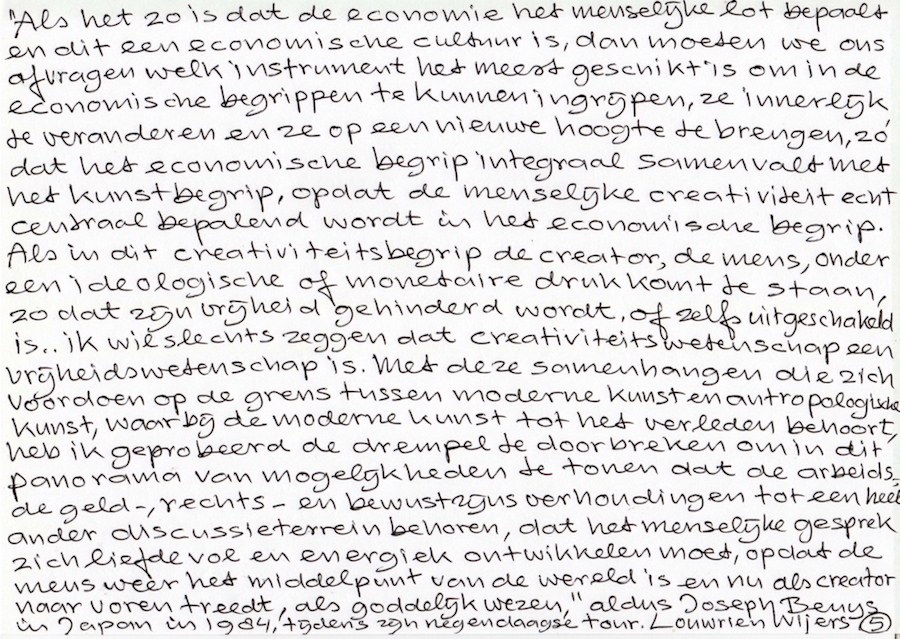 "Als het zo is dat de economie het menselijke lot bepaalt
en dit een economische cultuur is, dan moeten we ons
afvragen welk instrument het meest geschikt is om in de
economische begrippen te kunnen ingrijpen, ze innerlijk
te veranderen en ze op een nieuwe hoogte te brengen, zó
dat het economische begrip integraal samenvalt met
het kunstbegrip, opdat de menselijke creativiteit echt
centraal bepalend wordt in het economische begrip.
Als in dit creativiteitsbegrip de creator, de mens, onder
een ideologische of monetaire druk komt te staan,
zo dat zijn vrijheid gehinderd wordt, of zelfs uitgeschakeld
is.. ik wil slechts zeggen dat creativiteitswetenschap een
vrijheidswetenschap is. Met deze samenhangen die zich
voordoen op de grens tussen moderne kunst en antropologische
kunst, waarbij de moderne kunst tot het verleden behoort,
heb ik geprobeerd de drempel te doorbreken om in dit
panorama van mogelijkheden te tonen dat de arbeids-
de geld-, rechts- en bewustzijns verhoudingen tot een heel
ander discussieterrein behoren, dat het menselijke gesprek
zich liefde vol en energiek ontwikkelen moet, opdat de
mens weer het middelpunt van de wereld is en nu als creator
naar voren treedt, als goddelijk wezen," aldus Joseph Beuys
in Japan in 1984, tijdens zijn negendaagse tour. Louwrien Wijers 5